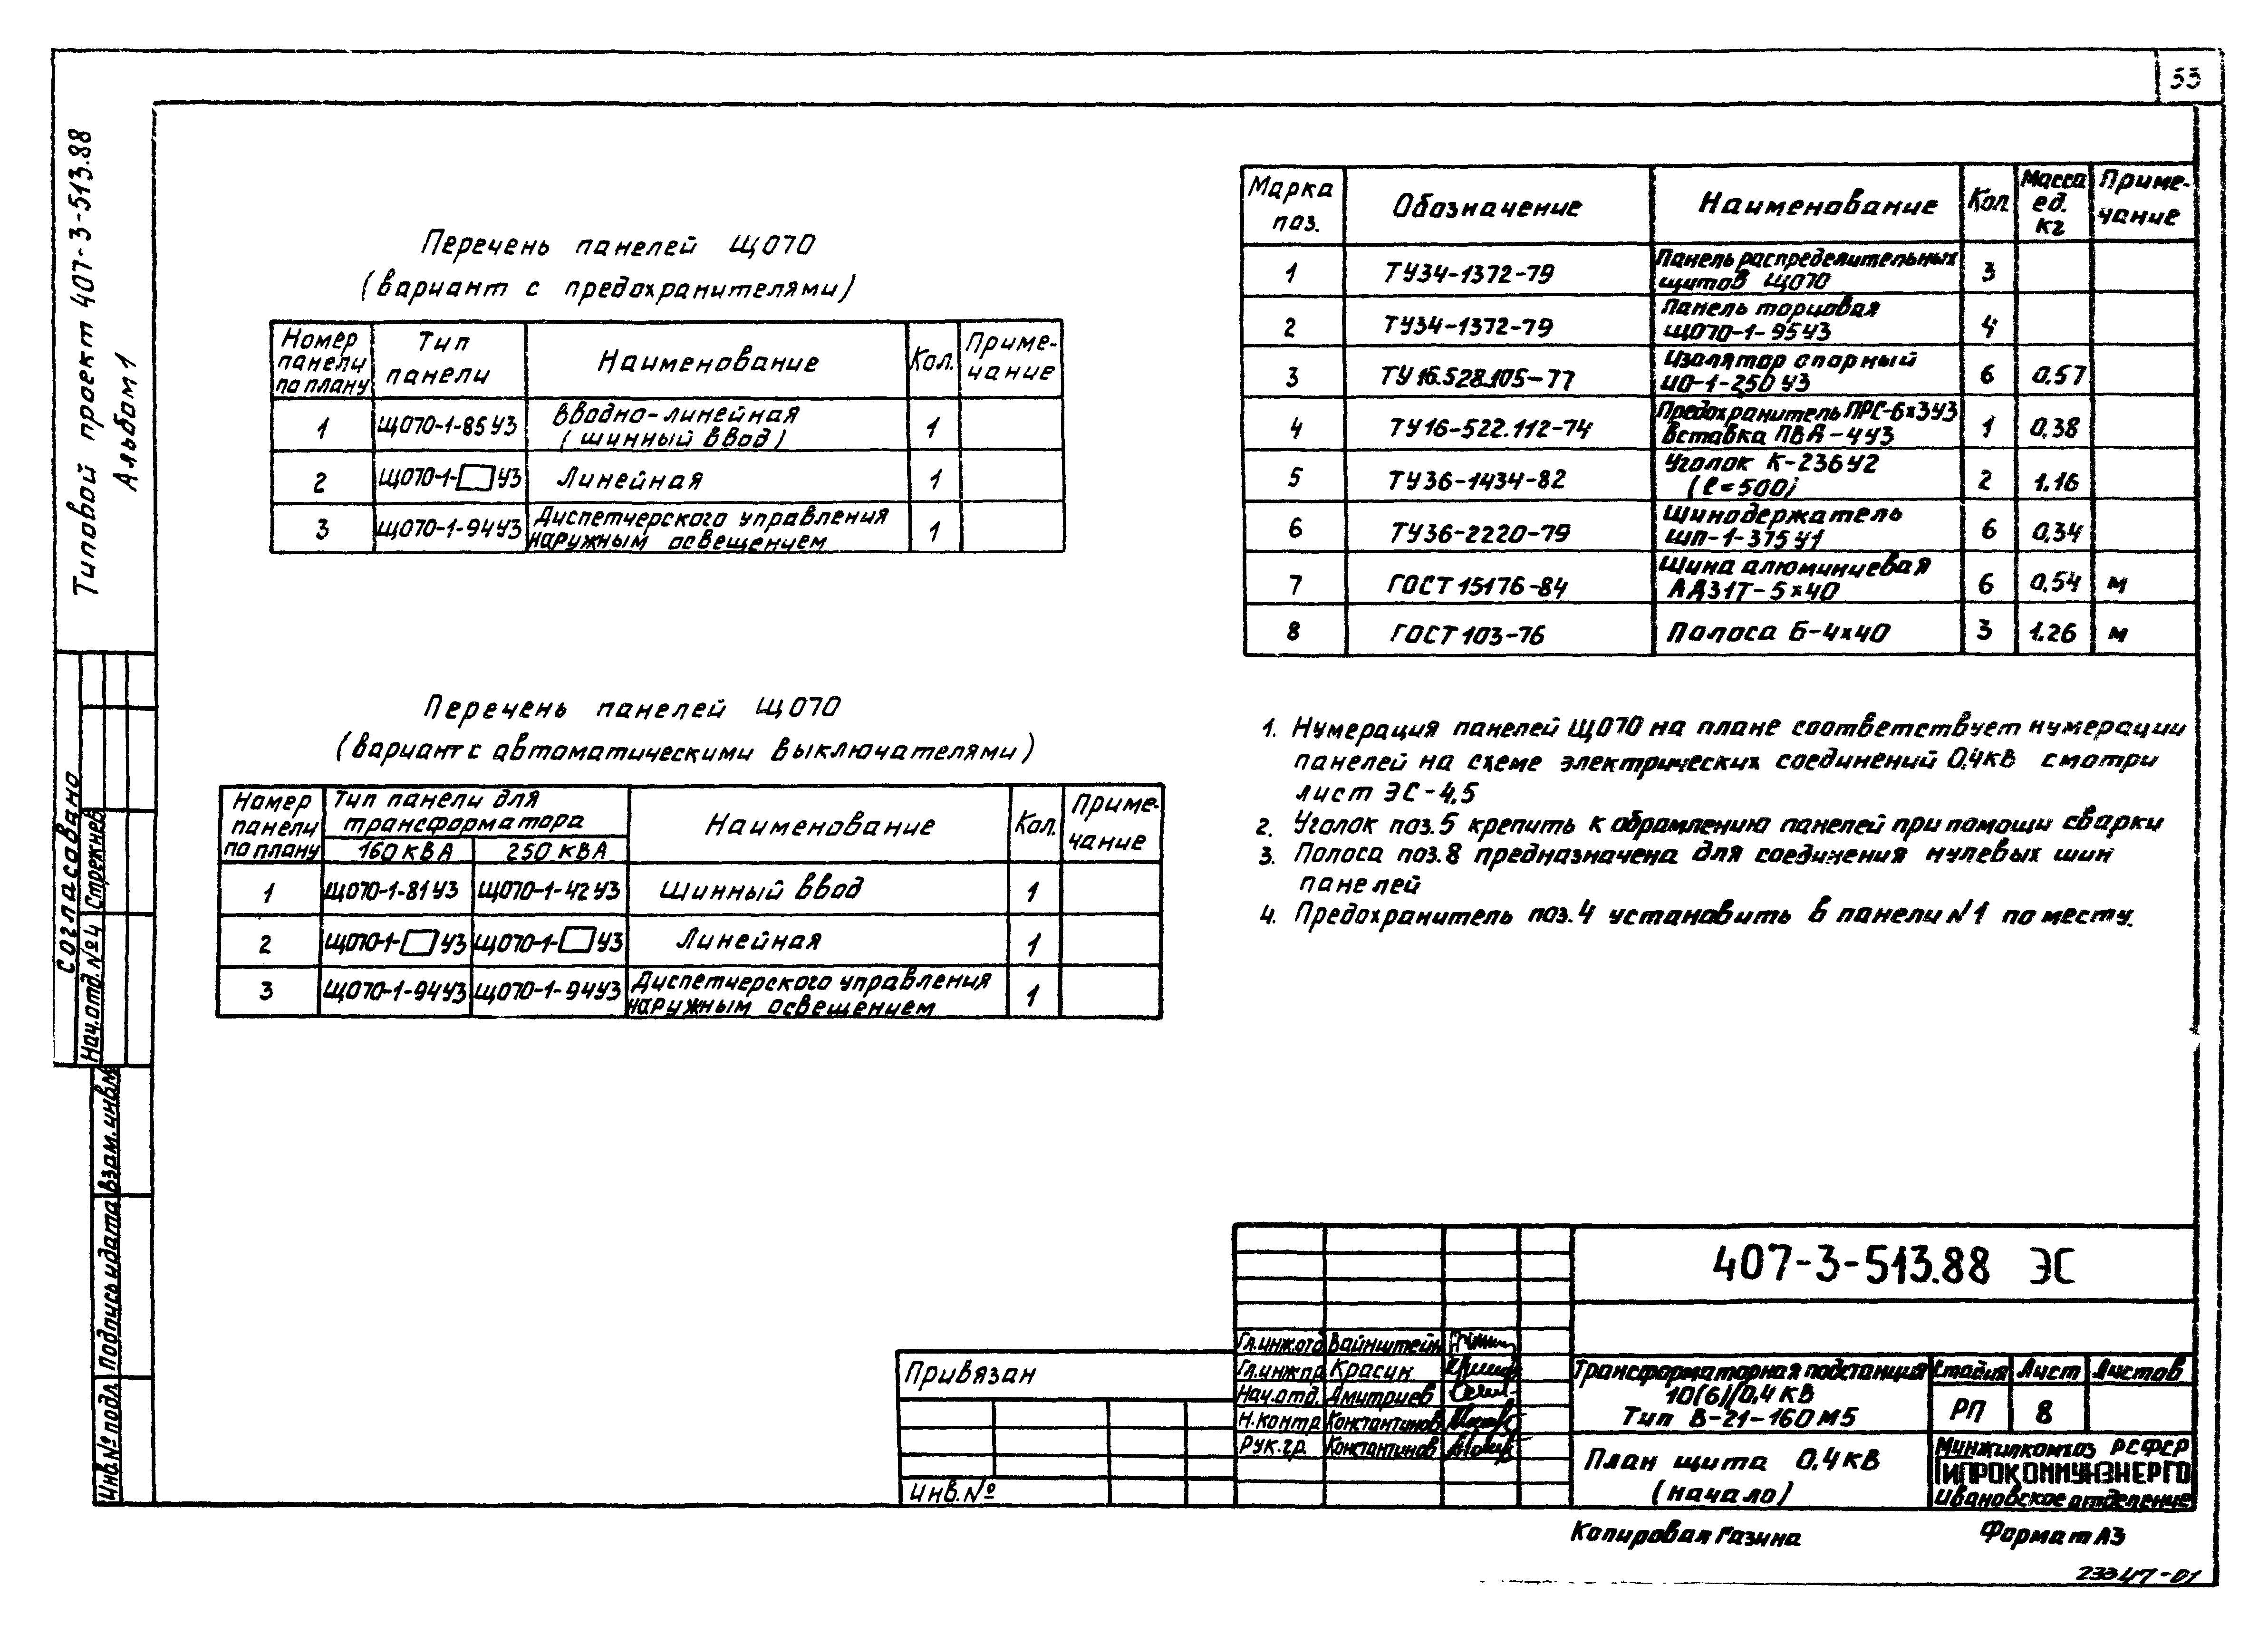 33
Типовой проект 407-3-513.88
Альбом 1
Перечень панелей ЩО70
(вариант с предохранителями)
Номер панели по плану | Тип панели | Наименование | Кол. | Приме-чание
1 | ЩО70-1-85У3 | Вводно-линейная (шинный ввод) | 1
2 | ЩО70-1-□У3 | Линейная | 1
3 | ЩО70-1-94У3 | Диспетчерского управления наружным освещением | 1
Перечень панелей ЩО70
(вариант с автоматическими выключателями)
Номер панели по плану | Тип панели для трансформатора | Наименование | Кол. | Приме-чание
160 кВА | 250 кВА
1 | ЩО70-1-81У3 | ЩО70-1-42У3 | Шинный ввод | 1
2 | ЩО70-1-□У3 | ЩО70-1-□У3 | Линейная | 1
3 | ЩО70-1-94У3 | ЩО70-1-94У3 | Диспетчерского управления наружным освещением | 1
Марка поз. | Обозначение | Наименование | Кол. | Масса ед. кг | Приме-чание
1 | ТУ34-1372-79 | Панель распределительных щитов ЩО70 | 3
2 | ТУ34-1372-79 | Панель торцовая ЩО70-1-95У3 | 4
3 | ТУ16.528.105-77 | Изолятор опорный ИО-1-250У3 | 6 | 0.57
4 | ТУ16-522.112-74 | Предохранитель ПРС-6х3У3 Вставка ПВД-4У3 | 1 | 0.38
5 | ТУ36-1434-82 | Уголок К-236У2 (ℓ=500) | 2 | 1.16
6 | ТУ36-2220-79 | Шинодержатель ШП-1-375У1 | 6 | 0.34
7 | ГОСТ 15176-84 | Шина алюминиевая АД31Т-5х40 | 6 | 0.54 | м
8 | ГОСТ 103-76 | Полоса Б-4х40 | 3 | 1.26 | м
1. Нумерация панелей ЩО70 на плане соответствует нумерации
панелей на схеме электрических соединений 0,4кВ смотри
лист ЭС-4,5
2. Уголок поз.5 крепить к обрамлению панелей при помощи сварки
3. Полоса поз.8 предназначена для соединения нулевых шин
панелей
4. Предохранитель поз.4 установить в панели N1 по месту.
Согласовано
Нач.отд.№4 Стрежнев
Взам.инв.№
Подпись и дата
Инв.№ подл.
Привязан
Инв.№
407-3-513.88 ЭС
Гл.инж.отд Вайнштейн
Гл.инж.пр. Красин
Нач.отд. Дмитриев
Н.контр. Константинов
Рук.гр. Константинов
Трансформаторная подстанция
10(6)/0,4 кВ
Тип В-21-160М5
Стадия | Лист | Листов
РП | 8
План щита 0.4кВ
(начало)
Минжилкомхоз РСФСР
ГИПРОКОММУНЭНЕРГО
Ивановское отделение
Копировал Газина
Формат А3
23347-01